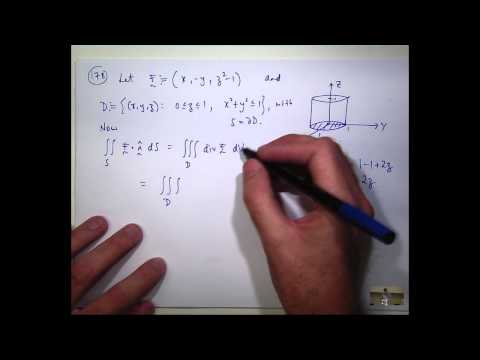 178 Let F := (x, -y, z²-1) and
D := {(x,y,z): 0≤z≤1, x²+y²≤1}, with
S = ∂D.
Now
∬_S F · n̂ dS = ∭_D div F dV
= ∭_D
1-1+2z
2z
Z
Y
1